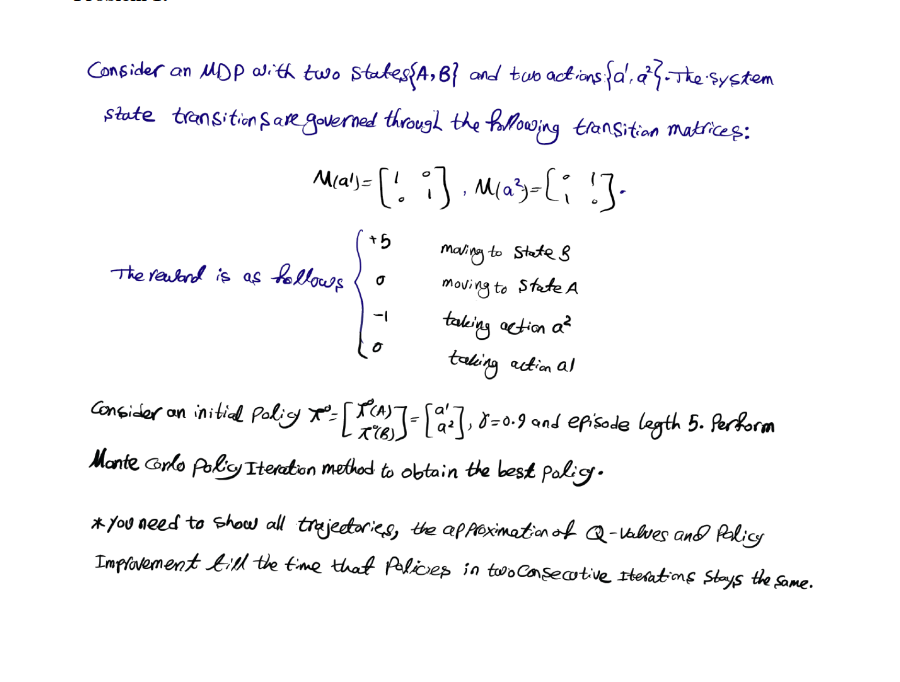 Consider an MDP with two states{A,B} and two actions {a¹, a²}. The system
state transitions are governed through the following transition matrices:
M(a¹)= [1 0 , M(a²)=[0 1
0 1] 1 0].
The reward is as follows { +5 moving to state B
0 moving to state A
-1 taking action a²
0 taking action a1
Consider an initial policy π⁰=[π⁰(A) π⁰(B)]=[a¹ a²], γ=0.9 and episode legth 5. Perform
Monte Carlo Policy Iteration method to obtain the best policy.
*You need to show all trajectories, the approximation of Q-values and Policy
Improvement till the time that Policies in two Consecutive iterations stays the same.